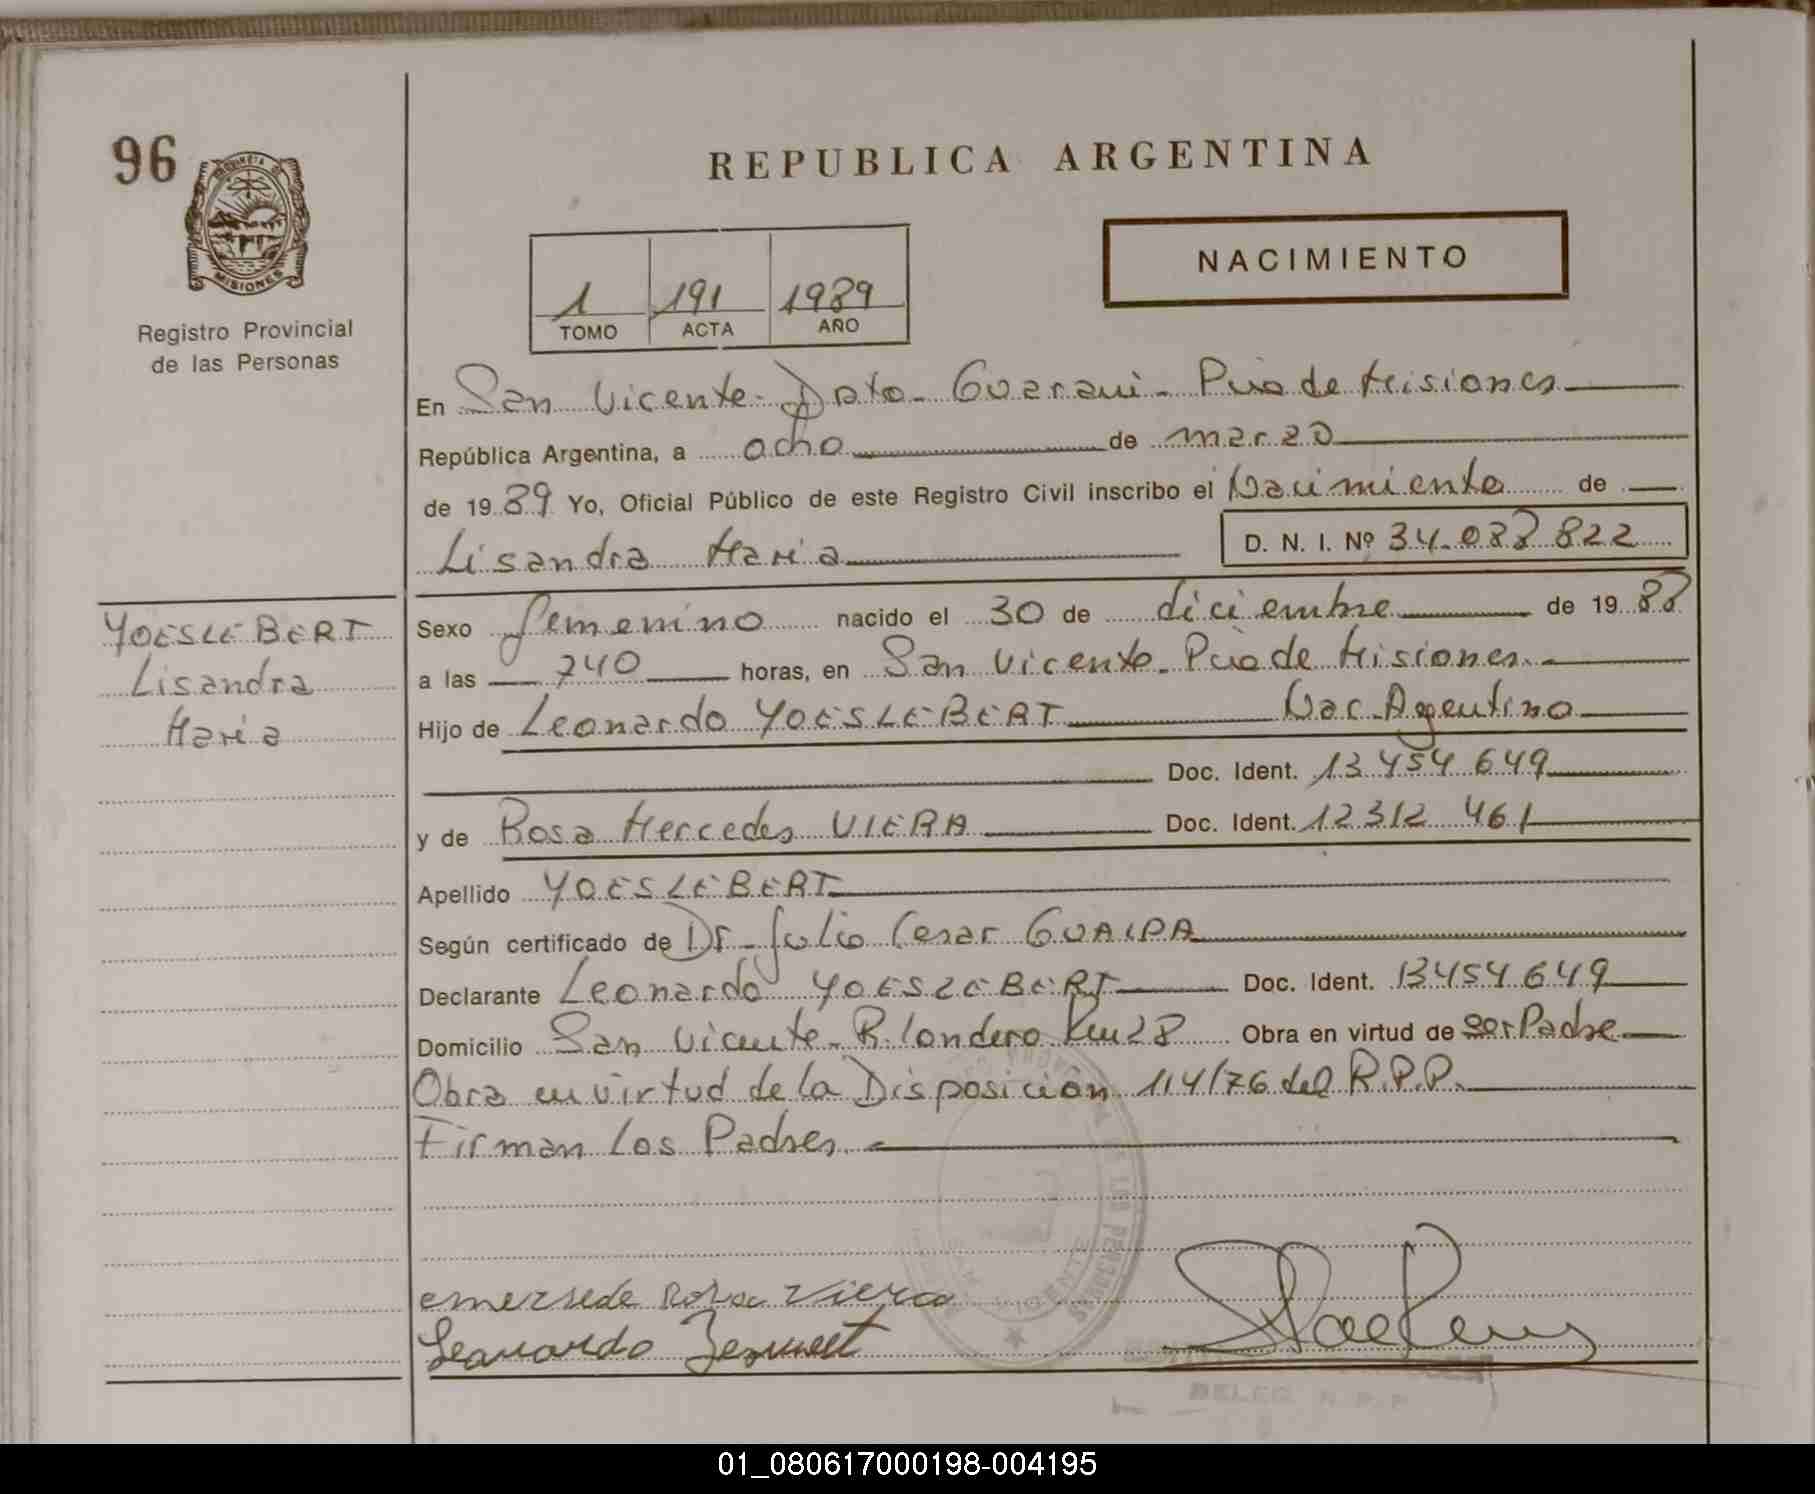 96
MISIONES
Registro Provincial
de las Personas
REPUBLICA ARGENTINA
NACIMIENTO
1 191 1989
TOMO ACTA AÑO
En San Vicente - Dpto - Guarani - Pcia de Misiones
República Argentina, a ocho de marzo
de 1989 Yo, Oficial Público de este Registro Civil inscribo el Nacimiento de
Lisandra Maria D. N. I. Nº 34.088 822
YOESLEBERT
Lisandra
Maria
Sexo femenino nacido el 30 de diciembre de 1988
a las 740 horas, en San Vicente - Pcia de Misiones
Hijo de Leonardo YOESLEBERT Nac. Argentino
Doc. Ident. 13 454 649
y de Rosa Mercedes VIERA Doc. Ident. 12312 461
Apellido YOESLEBERT
Según certificado de Dr. Julio Cesar
Declarante Leonardo YOESLEBERT Doc. Ident. 13454649
Domicilio San Vicente - B. Londero Km 28 Obra en virtud de ser Padre
Obra en virtud de la Disposicion 114/76 del R.P.P.
Firman los Padres
emersede Rosa Viera
Leonardo
01_080617000198-004195